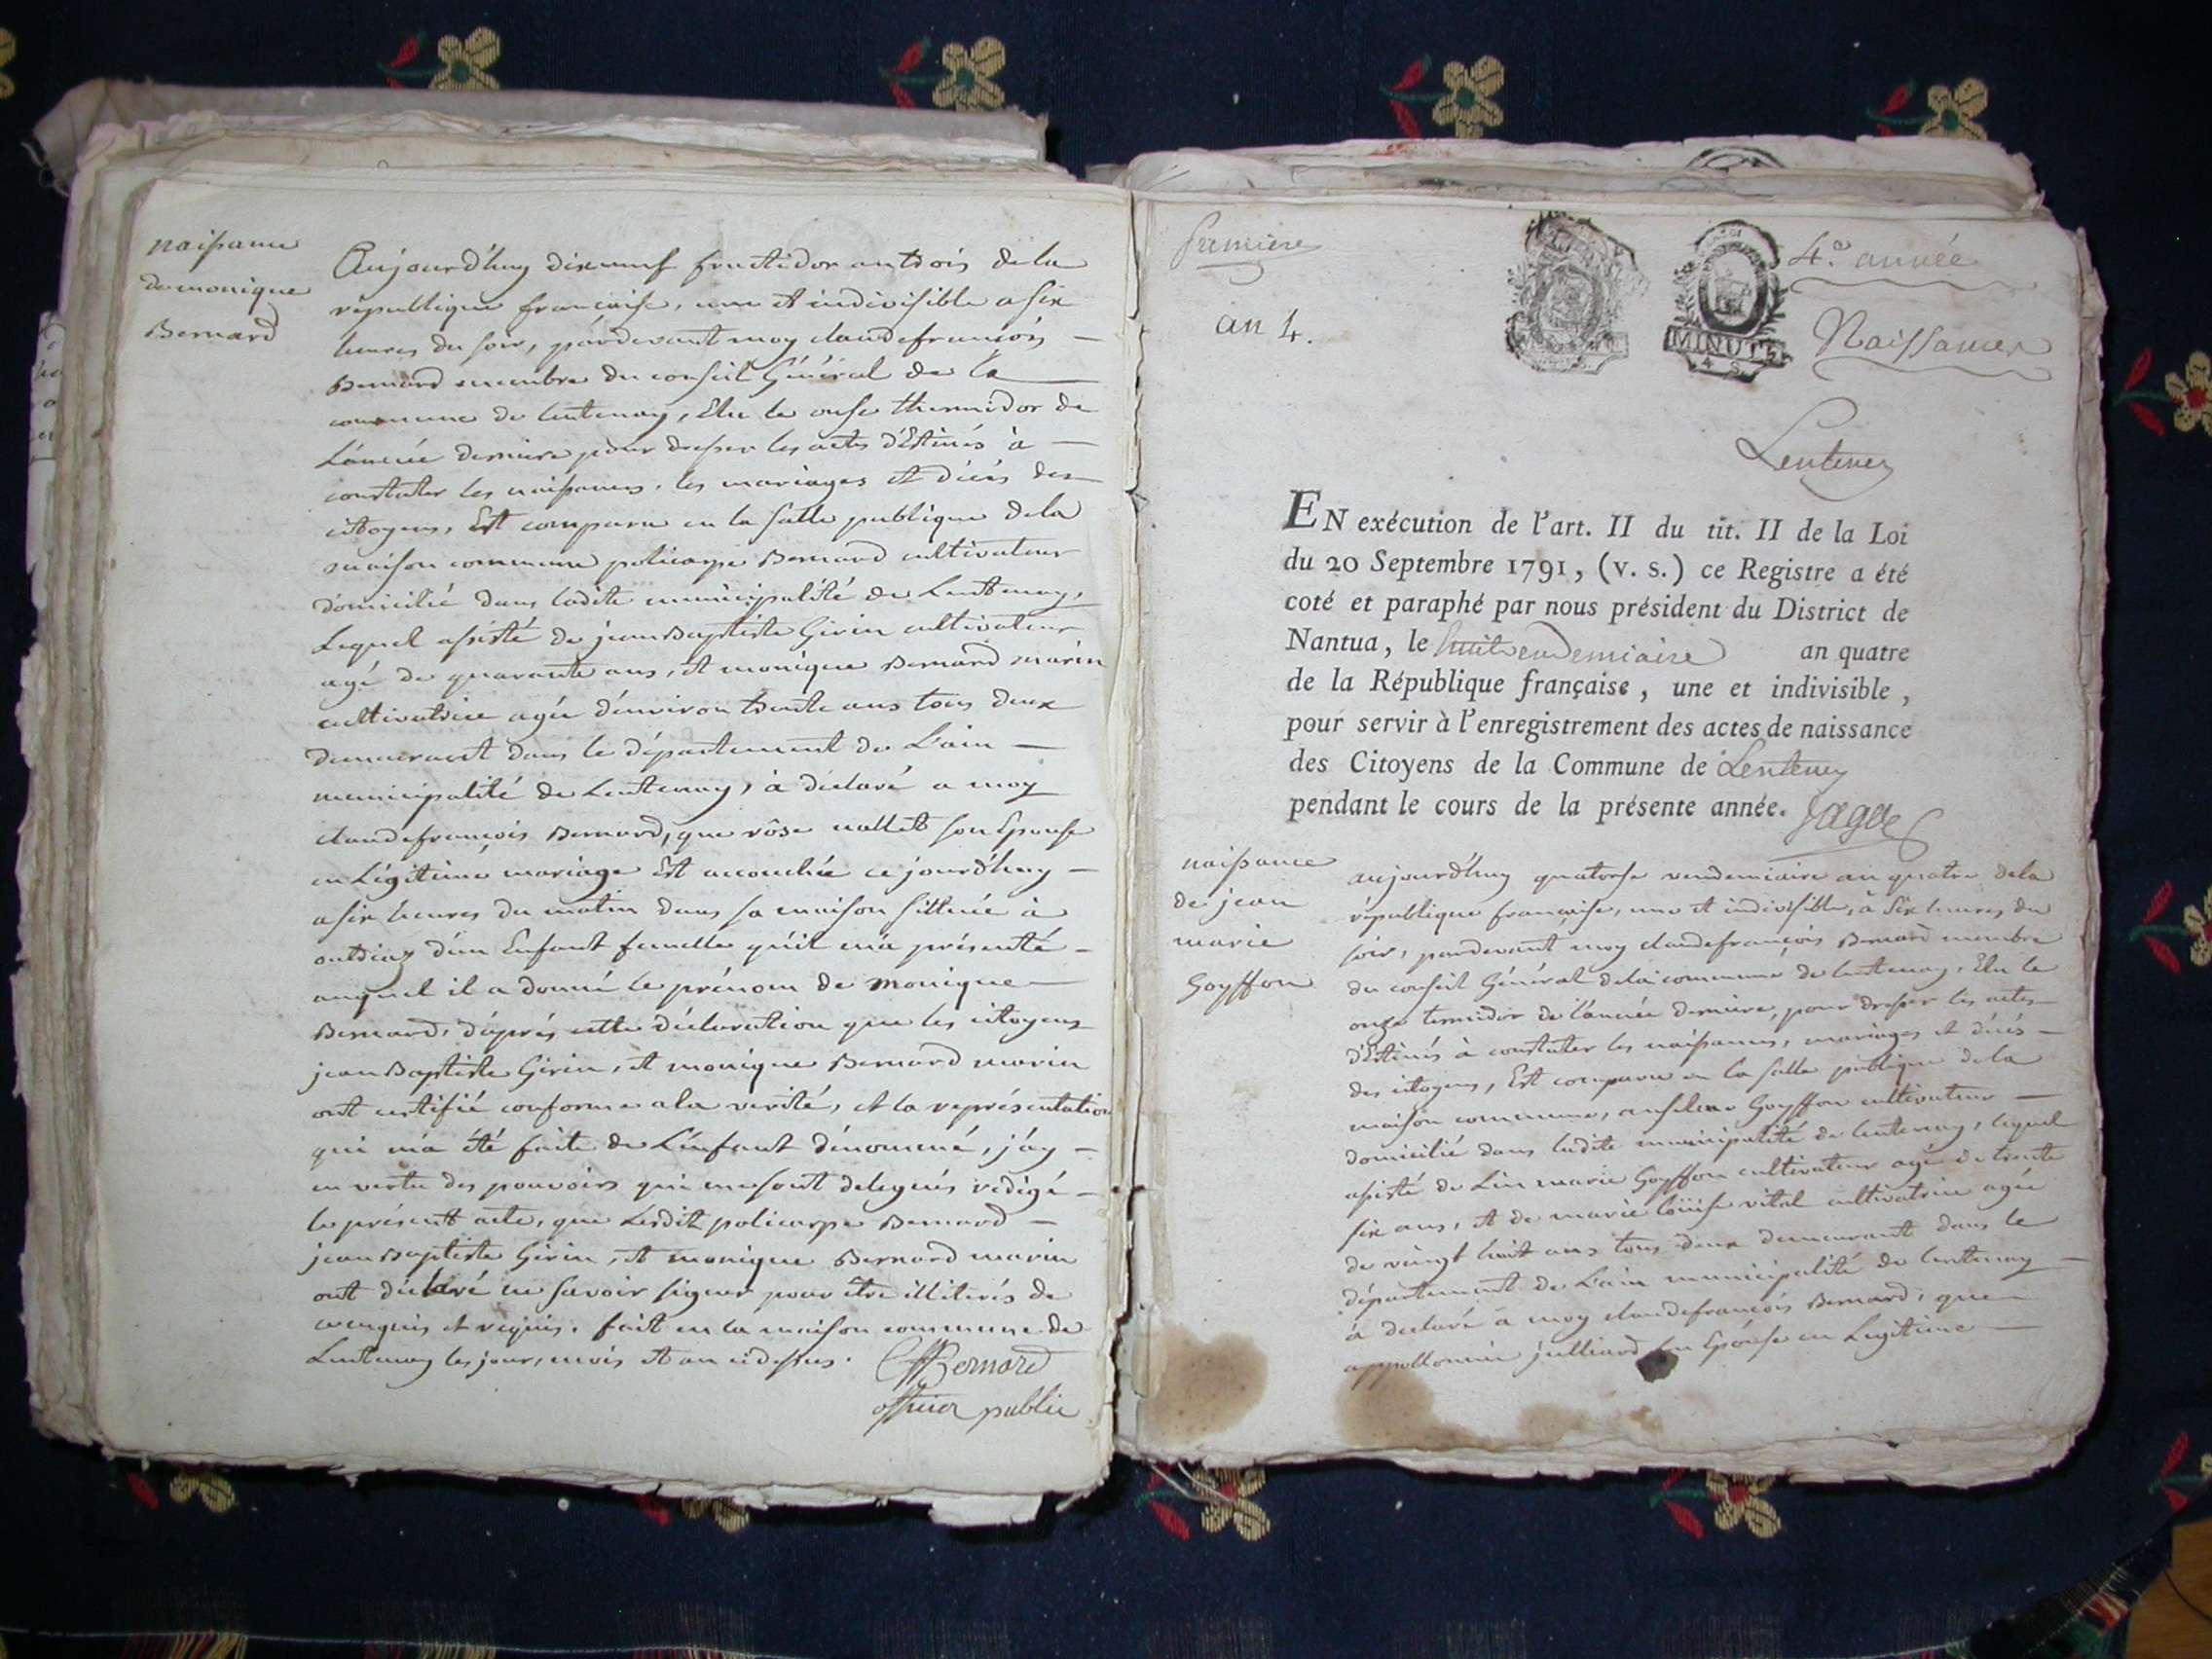 naissance
de monique
Bernard
Aujourd'huy dixneuf fructidor an trois de la
république francaise, une et indivisible a six
heures du soir, pardevant moy claudefrancois
Bernard membre du conseil Général de la
commune de lentenay, Elu le onse thermidor de
L'année derniere pour dresser les actes d'Estinés à
constater les naissances, les mariages et décés des
citoyens, Est comparu en la salle publique de la
maison commune policarpe Bernard cultivateur
domicilié dans ladite municipalité de Lentenay,
Lequel assisté de jean Baptiste Girin cultivateur
agé de quarante ans, et monique Bernard marin
cultivatrice agée d'environ trente ans tous deux
demeurant dans le département de L'ain
municipalité de Lentenay, à déclaré a moy
claudefrancois Bernard, que rôse nallet son Epouse
en Légitime mariage Est accouchée ce jourd'huy
a six heures du matin dans sa maison sittuée à
outriaz d'un Enfant femelle qu'il m'a présenté
auquel il a donné le prénom de monique
Bernard, d'aprés cette déclaration que les citoyens
jean Baptiste Girin, et monique Bernard marin
ont certifié conforme a la verité, et la représentation
qui m'a été faite de L'enfant dénommé, j'ay
en vertu des pouvoirs qui me sont delegués redigé
le présent acte, que Lesdit policarpe Bernard
jean Baptiste Girin, et monique Bernard marin
ont déclaré ne savoir signer pour être illiterés de
ce enquis et requis. fait en la maison commune de
Lentenay les jour, mois et an cidessus.
CfBernard
officier public
premiere
4.e année
an 4.
MINUTE
4 S.
Naissances
Lentenay
EN exécution de l'art. II du tit. II de la Loi
du 20 Septembre 1791, (v. s.) ce Registre a été
coté et paraphé par nous président du District de
Nantua, le huit vendemiaire an quatre
de la République française, une et indivisible,
pour servir à l'enregistrement des actes de naissance
des Citoyens de la Commune de Lentenay
pendant le cours de la présente année.
naissance
de jean
marie
Goyffon
aujourd'huy quatorse vendemiaire an quatre de la
république francaise, une et indivisible, à six heures du
soir, pardevant moy claudefrancois Bernard membre
du conseil Général de la commune de lentenay, Elu le
onze termidor de l'année derniere, pour dresser les actes
d'Estinés à constater les naissances, mariages et décés
des citoyens, Est comparu en la salle publique de la
maison commune, anselme Goyffon cultivateur
domicilié dans ladite municipalité de lentenay, lequel
assisté de Lin marie Goyffon cultivateur agé de trente
six ans, et de marie loüise vital cultivatrice agée
de vingt huit ans tous deux demeurant dans le
département de L'ain municipalité de lentenay
à declaré à moy claudefrancois Bernard, que
appollonie julliard son Epouse en Legitime